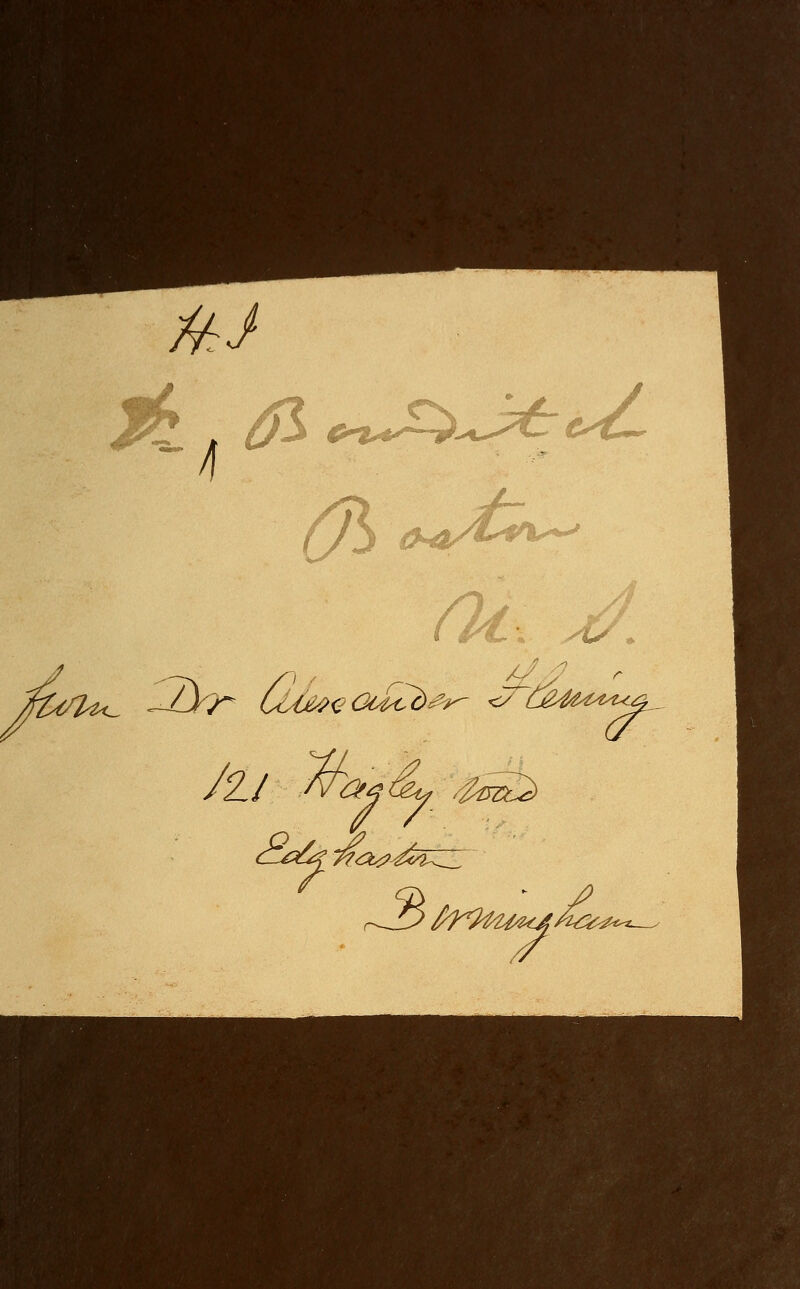 H. I
Dr ^ Bowditch
Boston
U. S.
from Dr Alexander Fleming
121 Hagley road
Edghaston
Birmingham